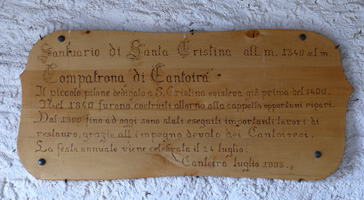 Santuario di Santa Cristina alt. m. 1340 s.l.m.
Compatrona di Cantoira
Il piccolo pilone dedicato a S. Cristina esisteva già prima del 1400.
Nel 1860 furono costruiti attorno alla cappella opportuni ripari.
Dal 1900 fino ad oggi sono stati eseguiti importanti lavori di
restauro, grazie all'impegno devoto dei Cantoiresi.
La festa annuale viene celebrata il 24 luglio.
Cantoira luglio